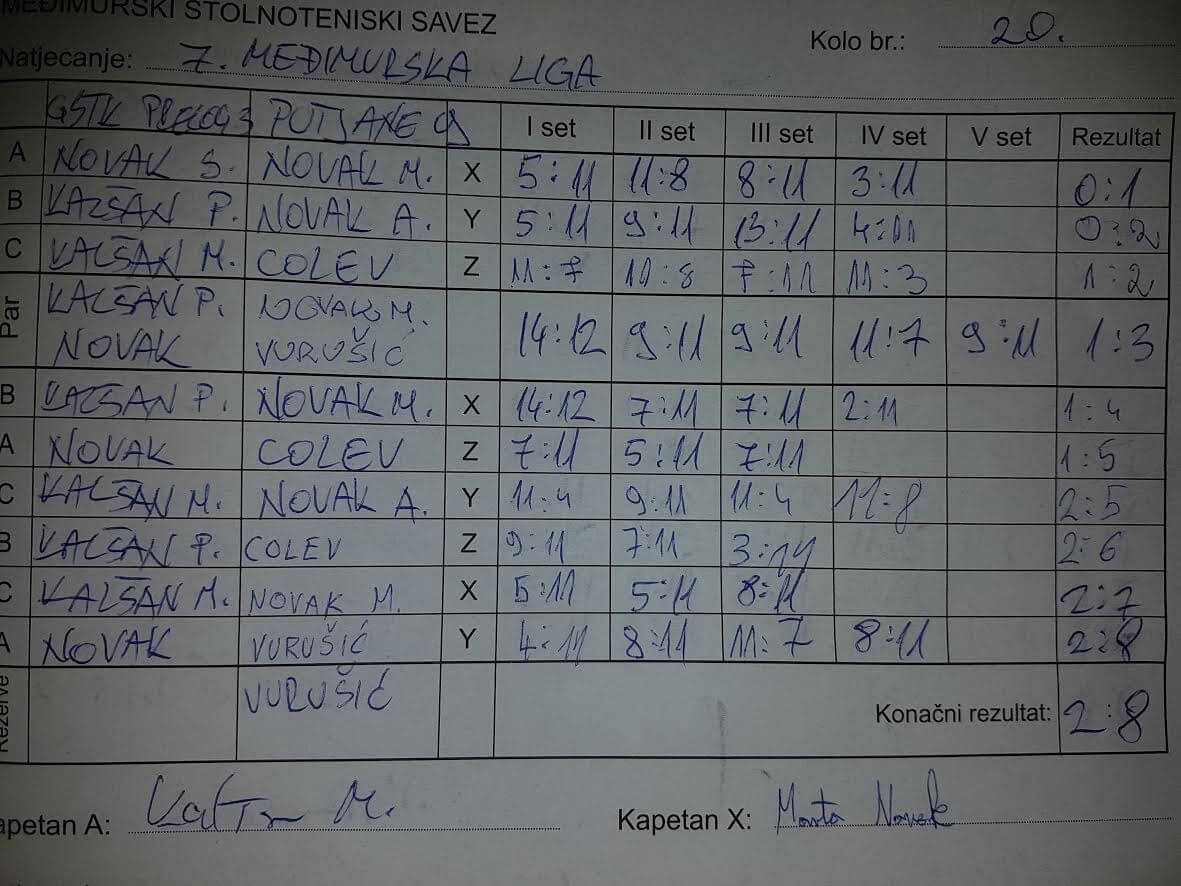 MEĐIMURSKI STOLNOTENISKI SAVEZ
Kolo br.: 20.
Natjecanje: 7. MEĐIMURSKA LIGA
GSTK PRELOG 3 PUTJANE I set II set III set IV set V set Rezultat
A NOVAK S. NOVAK M. X 5:11 11:8 8:11 3:11 0:1
B KALŠAN P. NOVAK A. Y 5:11 9:11 13:11 4:11 0:2
C KALŠAN M. COLEV Z 11:7 8 7:11 11:3 1:2
Par KALŠAN P. NOVAK M.
NOVAK VURUŠIĆ 14:12 9:11 9:11 11:7 9:11 1:3
B KALŠAN P. NOVAK M. X 14:12 7:11 7:11 2:11 1:4
A NOVAK COLEV Z 7:11 5:11 7:11 1:5
C KALŠAN M. NOVAK A. Y 11:4 9:11 11:4 11:8 2:5
B KALŠAN P. COLEV Z 9:11 7:11 3:11 2:6
C KALŠAN M. NOVAK M. X 5:11 5:11 8:11 2:7
A NOVAK VURUŠIĆ Y 4:11 8:11 11:7 8:11 2:8
Rezerve VURUŠIĆ Konačni rezultat: 2:8
Kapetan A: M. Kapetan X: Marta Novak